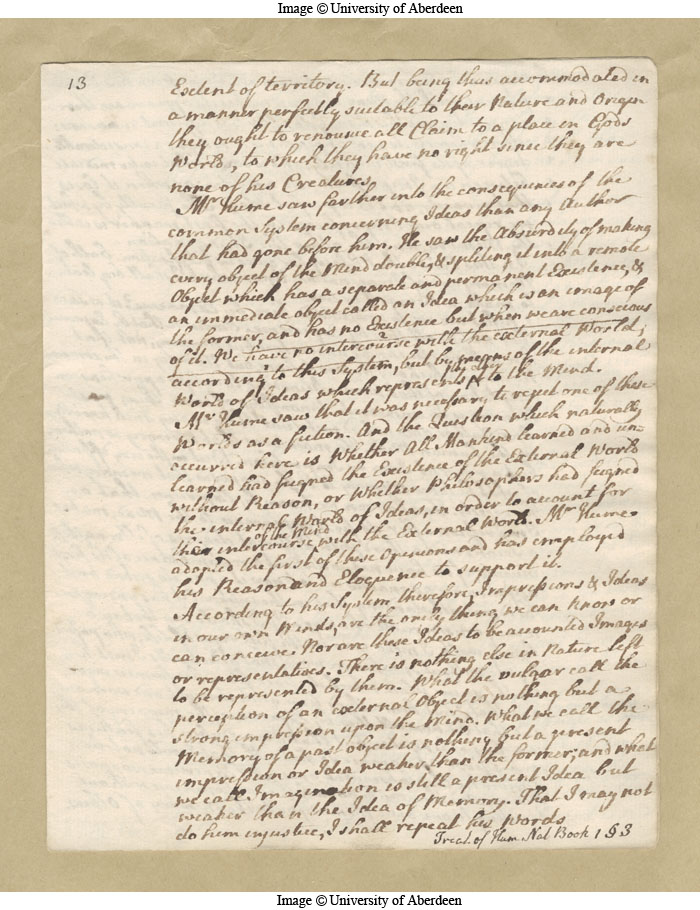 Image © University of Aberdeen
13
Extent of territory. But being thus accommodated in
a manner perfectly suitable to their Nature and Origin
they ought to renounce all Claim to a place in Gods
World, to which they have no right since they are
none of his Creatures.
Mr Hume saw farther into the consequences of the
common System concerning Ideas than any Author
that had gone before him. He saw the Absurdity of making
every object of the Mind double, & spliting it into a remote
Object which has a separate and permanent Existence, &
an immediate object called an Idea which is an image of
the former, and has no Existence but when we are conscious
of it. We have no intercourse with the external World,
according to this System, but by means of the internal
World of Ideas which represents to the Mind.
Mr Hume saw that it was necessary to reject one of these
Worlds as a fiction. And the Question which naturally
occurred here is Whether All Mankind learned and un-
learned had fugned the Existence of the External World
without Reason, or Whether Philosophers had fugned
the internal World of Ideas, in order to account for
of the Mind
intercourse with the External World. Mr Hume
adopted the first of these Opinions and has employd
his Reason and Eloquence to support it.
According to his System therefore, Impressions & Ideas
in our own Minds, are the only thing we can know or
can conceive. Nor are these Ideas to be accounted Images
or representatives. There is nothing else in Nature left
to be represented by them. What the vulgar call the
perception of an external Object is nothing but a
strong impression upon the Mind. What we call the
Memory of a past object is nothing but a present
impression or Idea weaker than the former; and what
we call Imagination is still a present Idea but
weaker than the Idea of Memory. That I may not
do him injustice, I shall repeat his words
Treat. of Hum Nat Book 1 § 3
Image © University of Aberdeen